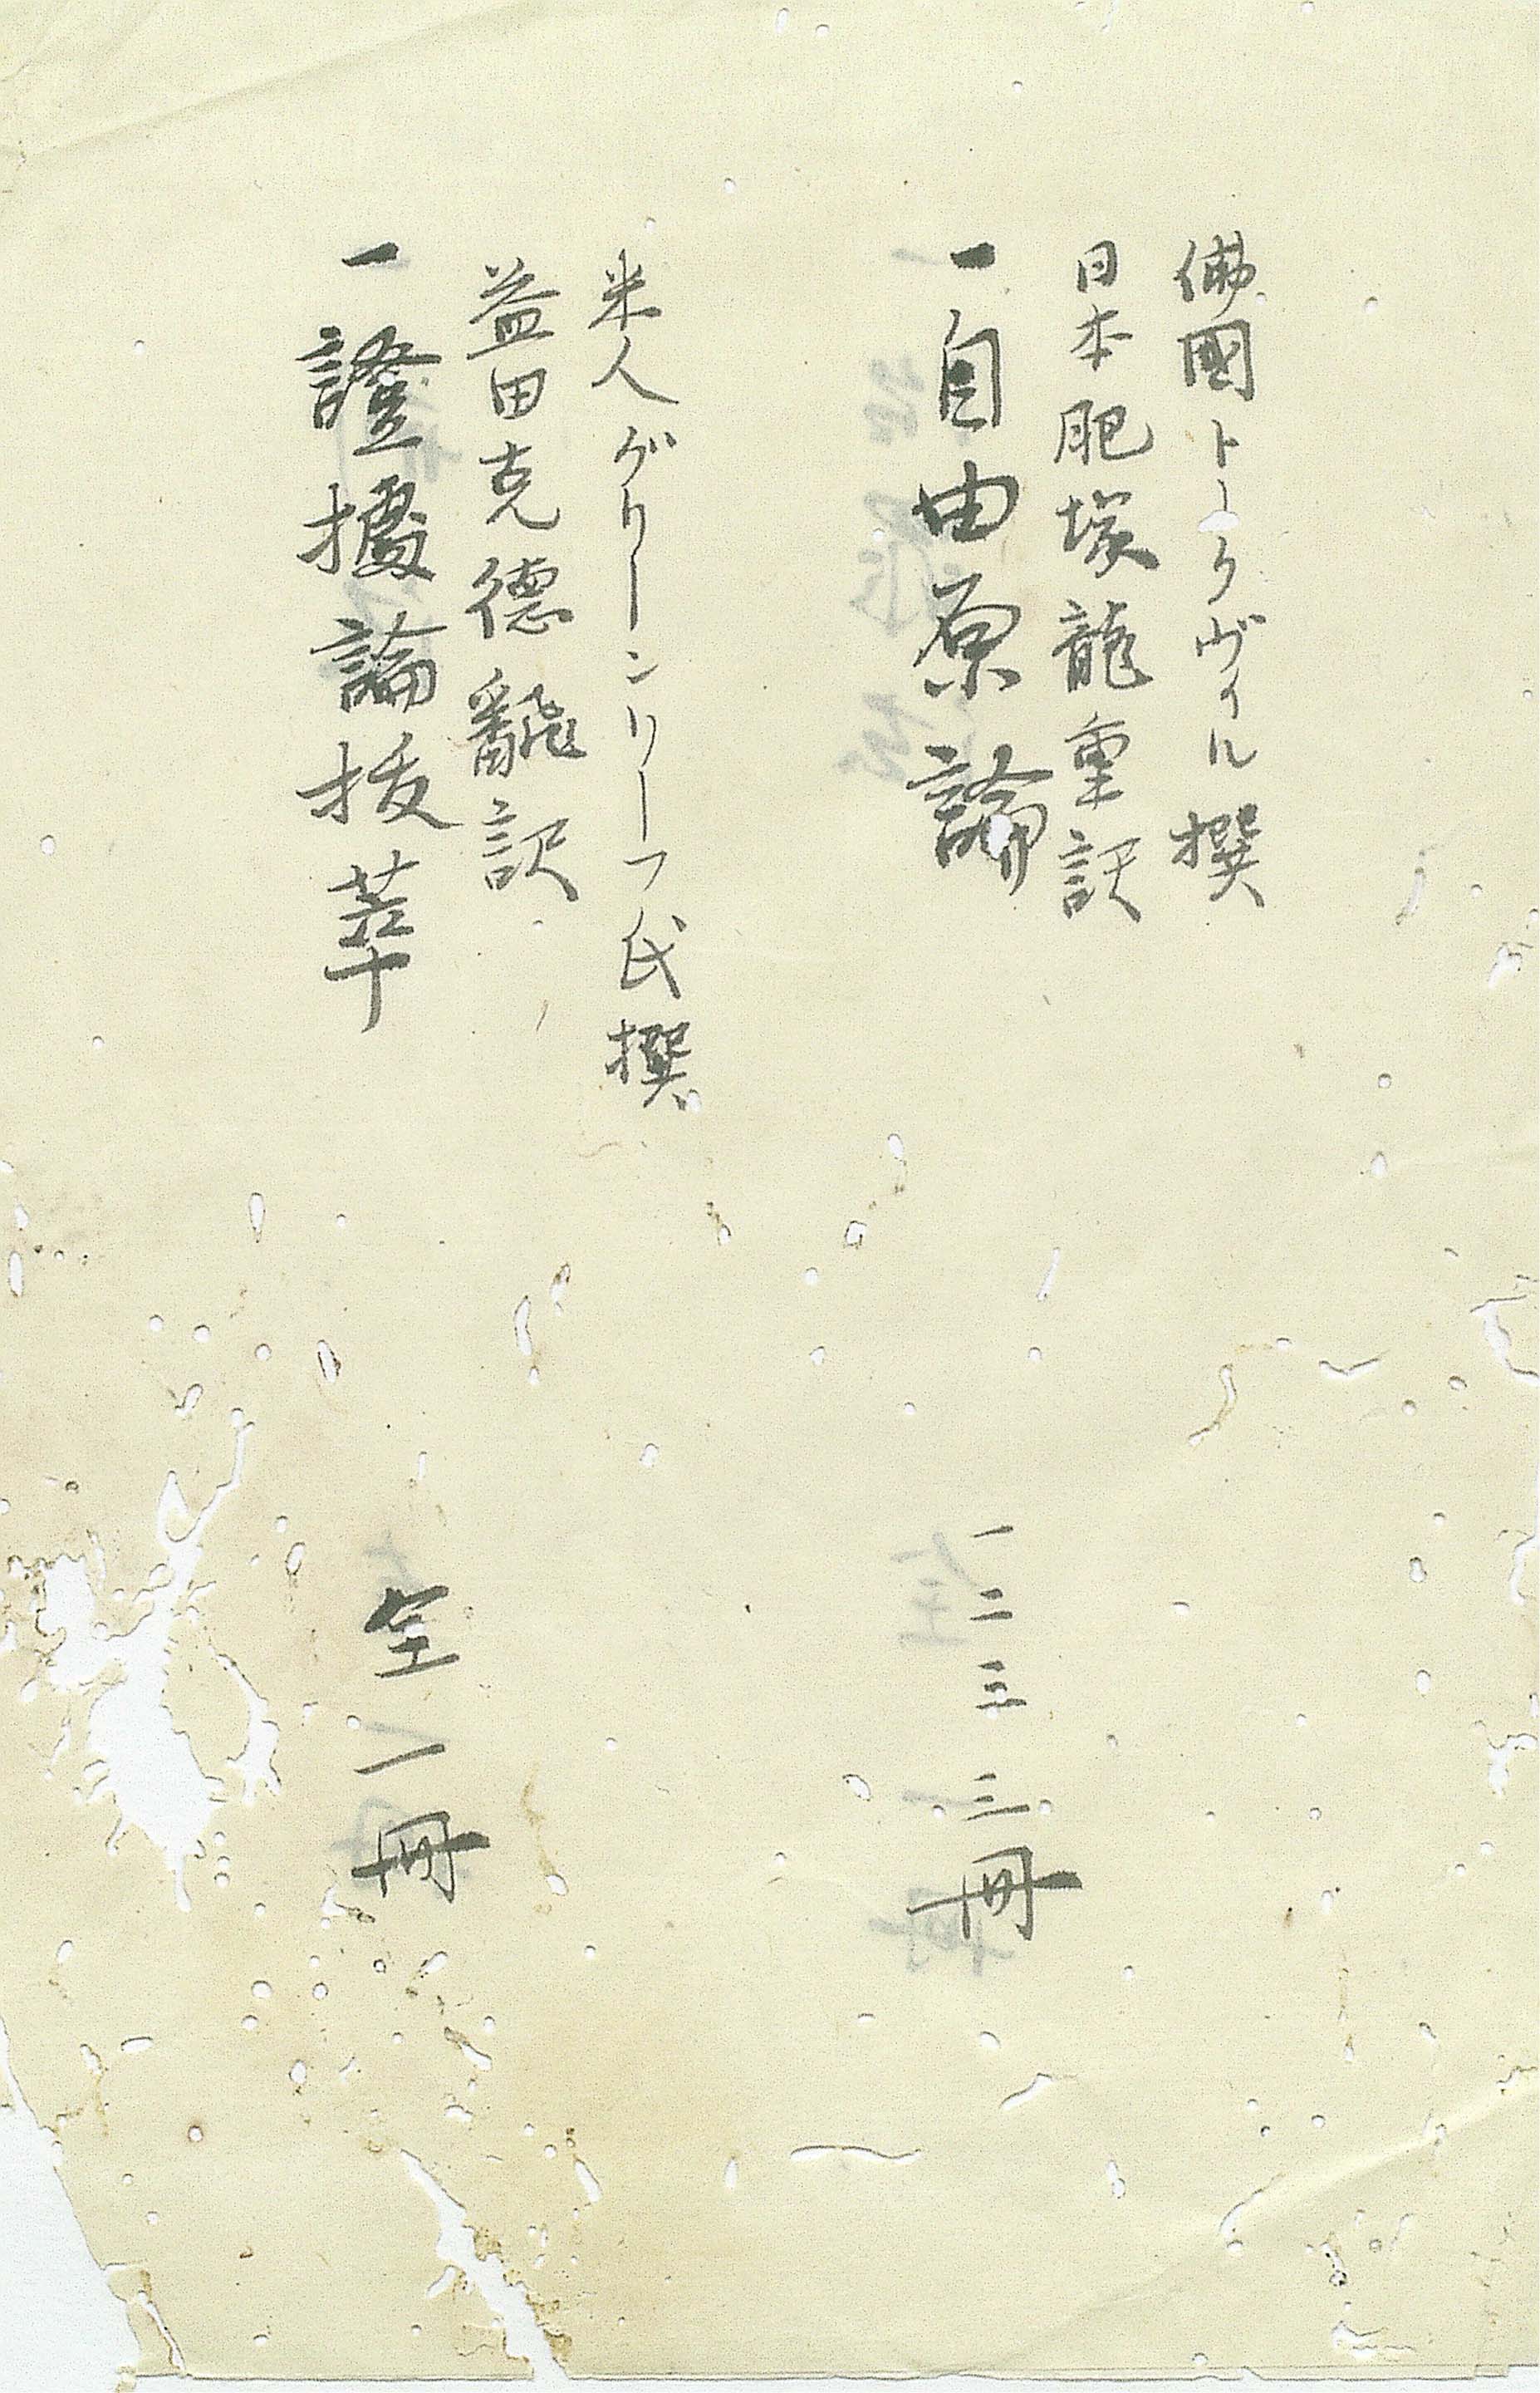 佛國トークヴィル撰
日本肥塚龍重訳
一自由原論
一二三 三冊
米人グリーンリーフ氏撰
益田克德飜訳
一證據論抜萃
全一冊